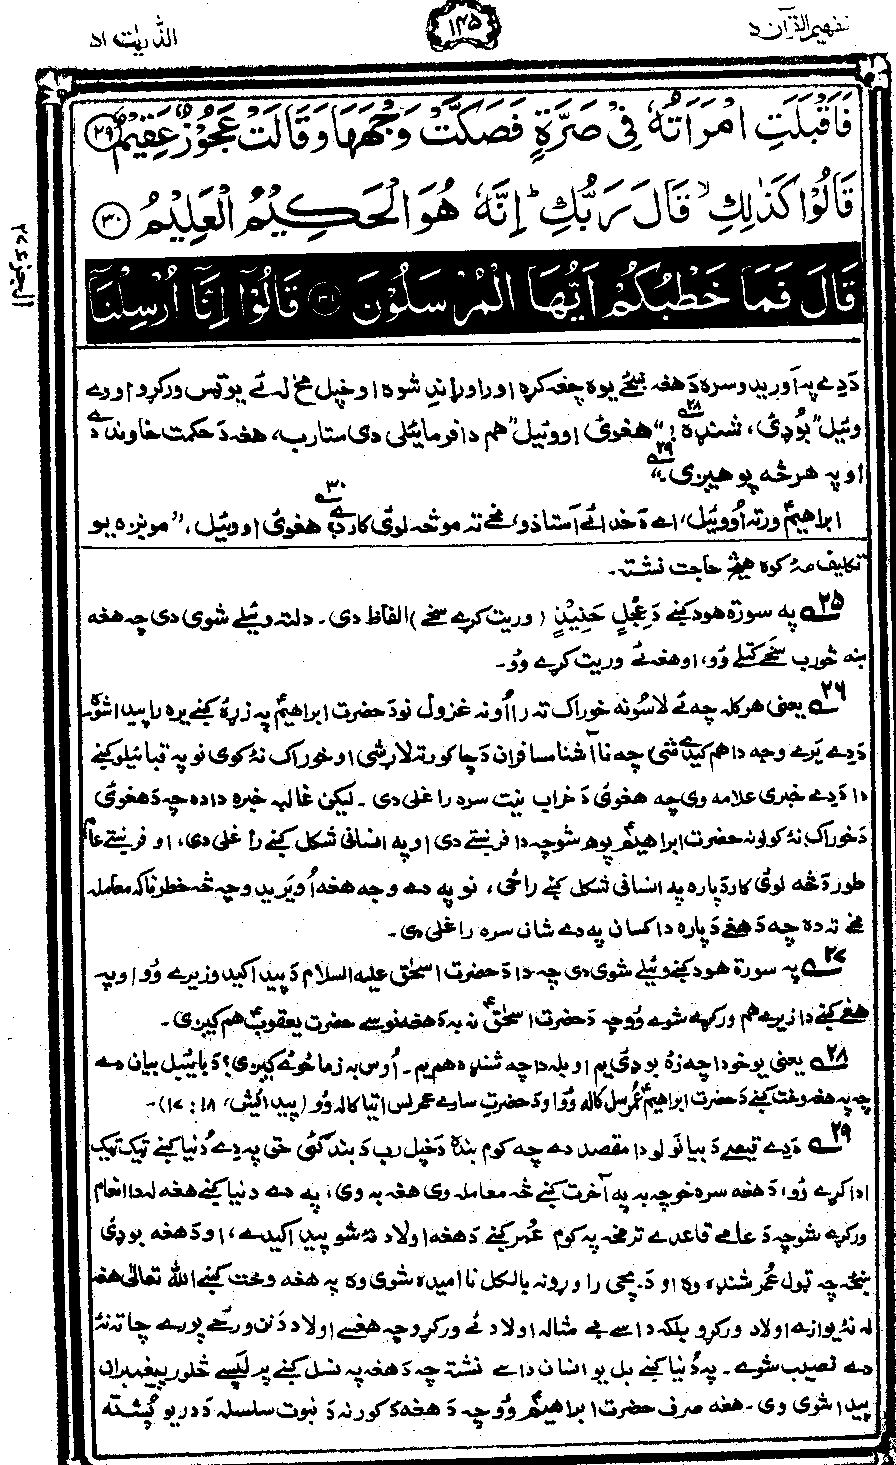 تفہیم القرآن ۵
۱۴۵
الذّٰریٰت ۵۱
فَاَقْبَلَتِ امْرَاَتُهٗ فِیْ صَرَّةٍ فَصَكَّتْ وَجْهَهَا وَقَالَتْ عَجُوْزٌ عَقِیْمٌ ۲۹
قَالُوْا كَذٰلِكِ ۙ قَالَ رَبُّكِ ؕ اِنَّهٗ هُوَ الْحَكِیْمُ الْعَلِیْمُ ۳۰
قَالَ فَمَا خَطْبُكُمْ اَیُّهَا الْمُرْسَلُوْنَ ۳۱ قَالُوْۤا اِنَّاۤ اُرْسِلْنَاۤ
الجزء ۲۷
دَدے په اَوریدو سره دَ هغه ښځے یوه چغه کړه اورا وړاندِ شوه او خپل مخ له ئے یو ټس ورکړو او رے
وئیل "بُوډئ، شنډه ۲۸!" هغوئ اووئیل "هم دا فرمائیلی دی ستا رب، هغه دَ حکمت خاوند دے
او په هر څه پوهیږی ۲۹۔"
ابراهیمؑ ورته اُووئیل، اے دَ خدائے اَستاذو! مخے ته مو څه لوئ کار دے ۳۰ هغوئ اووئیل، "مونږه یو
تکلیف مهٔ کوه هیڅ حاجت نشته۔
۲۵ په سورۃ هود کښے دَ عِجْلٍ حَنِیْذٍ (وریت کړے سخے) الفاظ دی۔ دلته وئیلے شوی دی چه هغه
ښه څورب سخے کتلے وُو، او هغه ئے وریت کړے وُو۔
۲۶ یعنی هر کله چه ئے لاسُونه خوراک ته را اُونه غزول نو دَ حضرت ابراهیمؑ په زړهٔ کښے یره را پیدا شوه
دَدے یَرے وجه دا هم کیدے شی چه نا آشنا مسافران دَ چا کور ته لار شی او خوراک نهٔ کوی نو په قبائیلو کښے
دا دَدے خبرے علامه وی چه هغوئ دَ خراب نیت سره را غلی دی۔ لیکن غالبه خبره داده چه دَ هغوئ
دَ خوراک نهٔ کولو نه حضرت ابراهیمؑ پوهه شو چه دا فرښتے دی او په انسانی شکل کښے را غلی دی، او فرښتے عام
طور دَ څه لوئ کار دَپاره په انسانی شکل کښے راځی، نو په دے وجه هغه اُویَریدو چه څه خطرناکه معامله
مخے ته ده چه دَ هغے دَپاره دا کسان په دے شان سره را غلی دی۔
۲۷ په سورۃ هود کښے وئیلے شوی دی چه دا دَ حضرت اسحٰق علیه السلام دَ پیدا کیدو زیرے وُو او په
هغے کښے دا زیرے هم ورکړے شوے وُو چه دَ حضرت اسحٰقؑ نه به دَ هغه نوسے حضرت یعقوبؑ هم کیږی۔
۲۸ یعنی یو خو دا چه زهٔ بوډئ یم او بله دا چه شنډه هم یم۔ اُوس به زما ځوئے کیږی؟ دَ بائیبل بیان دے
چه په هغه وخت کښے دَ حضرت ابراهیمؑ عُمر سل کاله وُو او دَ حضرتِ سارے عمر نوی کاله وُو (پیدائیش، ۱۸: ۱۷)۔
۲۹ دَدے قیصے دَ بیانولو دا مقصد دے چه کوم بنده دَ خپل رب دَ بندگئ حق په دے دُنیا کښے ټیک ټیک
ادا کړے وُو، دَ هغه سره خو چه به په آخرت کښے څه معامله وی هغه به وی، په دے دنیا کښے هغه له دا انعام
ورکړے شو چه دَ عامے قاعدے تر مخه په کوم عُمر کښے دَ هغه اولاد نهٔ شو پیدا کیدے، او دَ هغه بوډئ
ښځه چه ټول عُمر شنډه وه او دَ بچی راوړو نه بالکل نا امیده شوی وه په هغه وخت کښے الله تعالیٰ هغه
له نهٔ یوازے اولاد ورکړو بلکه داسے بے مثاله اولاد ئے ورکړو چه هغسے اولاد دَ نن ورځے پورے چا ته نهٔ
دے نصیب شوے۔ په دُنیا کښے بل یو انسان داسے نشته چه دَ هغه په نسل کښے پرلپسے څلور پیغمبران
پیدا شوی وی۔ هغه صرف حضرت ابراهیمؑ وُو چه دَ هغه دَ کور نه دَ نبوت سلسله دَ دریو پُشته